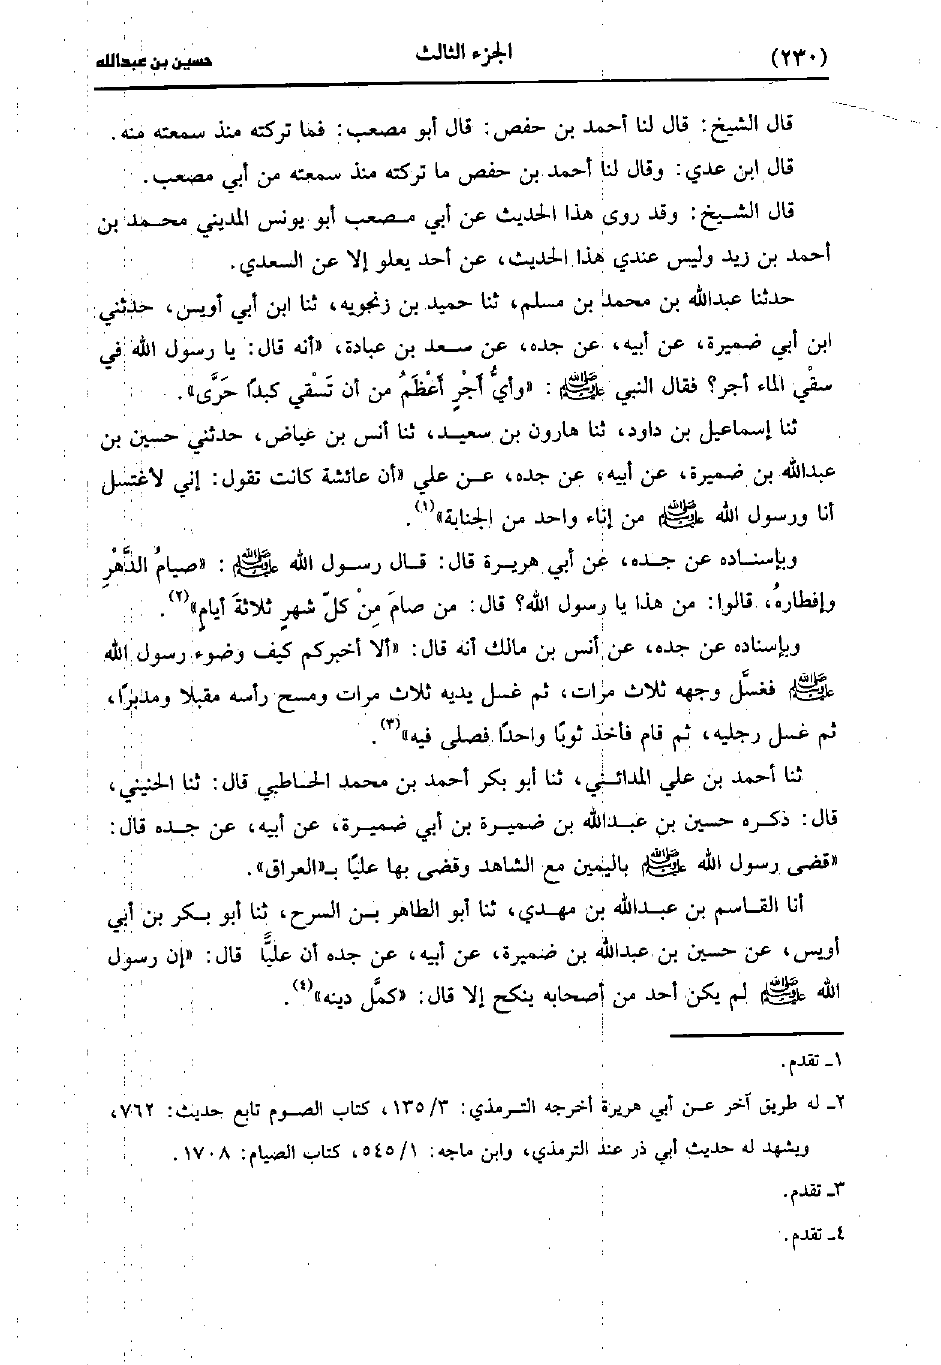 (٢٣٠) الجزء الثالث حسين بن عبدالله
قال الشيخ: قال لنا أحمد بن حفص: قال أبو مصعب: فما تركته منذ سمعته منه.
قال ابن عدي: وقال لنا أحمد بن حفص ما تركته منذ سمعته من أبي مصعب.
قال الشيخ: وقد روى هذا الحديث عن أبي مصعب أبو يونس المديني محمد بن
أحمد بن زيد وليس عندي هذا الحديث، عن أحد يعلو إلا عن السعدي.
حدثنا عبدالله بن محمد بن مسلم، ثنا حميد بن زنجويه، ثنا ابن أبي أويس، حدثني
ابن أبي ضميرة، عن أبيه، عن جده، عن سعد بن عبادة، «أنه قال: يا رسول الله في
سقْي الماء أجر؟ فقال النبي ﷺ : «وأيُّ أَجْرٍ أَعْظَمُ من أن تَسْقي كبدًا حَرَّى».
ثنا إسماعيل بن داود، ثنا هارون بن سعيد، ثنا أنس بن عياض، حدثني حسين بن
عبدالله بن ضميرة، عن أبيه، عن جده، عن علي «أن عائشة كانت تقول: إني لاغتسل
أنا ورسول الله ﷺ من إناء واحد من الجنابة»(١).
وبإسناده عن جده، عن أبي هريرة قال: قال رسول الله ﷺ : «صيامُ الدَّهْرِ
وإفطارهُ، قالوا: من هذا يا رسول الله؟ قال: من صامَ مِنْ كلّ شهرٍ ثلاثةَ أيامٍ»(٢).
وبإسناده عن جده، عن أنس بن مالك أنه قال: «ألا أخبركم كيف وضوء رسول الله
ﷺ فغسَّل وجهه ثلاث مرات، ثم غسل يديه ثلاث مرات ومسح رأسه مقبلا ومدبرًا،
ثم غسل رجليه، ثم قام فأخذ ثوبًا واحدًا فصلى فيه»(٣).
ثنا أحمد بن علي المدائني، ثنا أبو بكر أحمد بن محمد الحاطبي قال: ثنا الحنيني،
قال: ذكره حسين بن عبدالله بن ضميرة بن أبي ضميرة، عن أبيه، عن جده قال:
«قضى رسول الله ﷺ باليمين مع الشاهد وقضى بها عليًا بـ«العراق».
أنا القاسم بن عبدالله بن مهدي، ثنا أبو الطاهر بن السرح، ثنا أبو بكر بن أبي
أويس، عن حسين بن عبدالله بن ضميرة، عن أبيه، عن جده أن عليًّا قال: «إن رسول
الله ﷺ لم يكن أحد من أصحابه ينكح إلا قال: «كمَّل دينه»(٤).
١ـ تقدم.
٢ـ له طريق آخر عن أبي هريرة أخرجه الترمذي: ١٣٥/٣، كتاب الصوم تابع حديث: ٧٦٢،
ويشهد له حديث أبي ذر عند الترمذي، وابن ماجه: ٥٤٥/١، كتاب الصيام: ١٧٠٨.
٣ـ تقدم.
٤ـ تقدم.